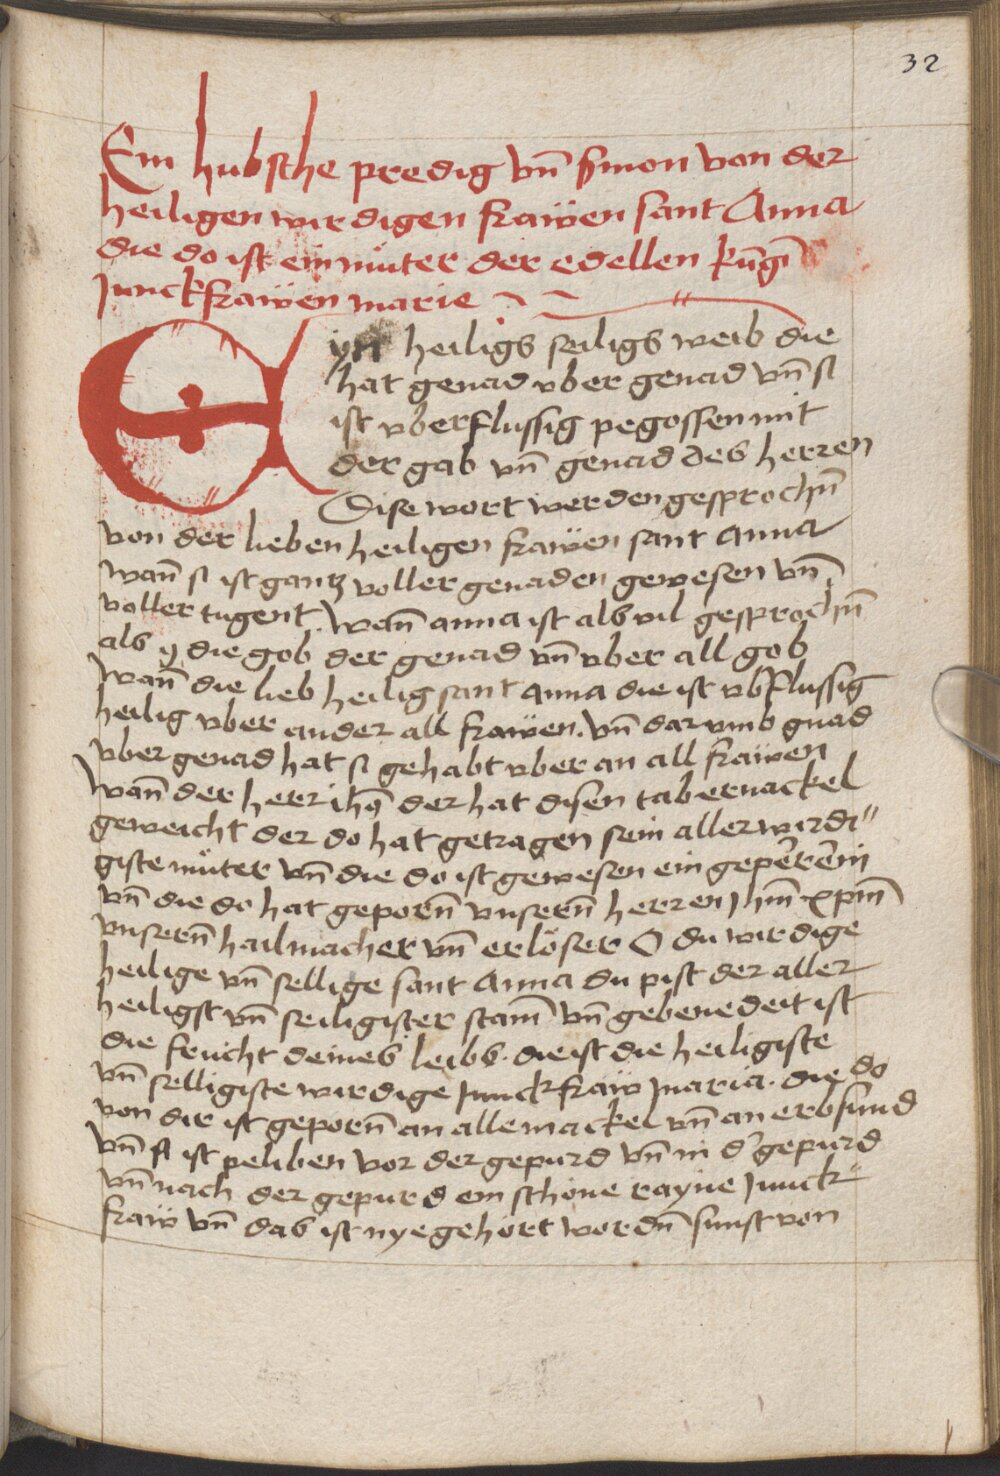 32
Ein hubsche predig vn̄ s̄mon von der
heiligen wirdigen frawen sant Anna
die do ist ein muter der edellen kūgī
Junckfrawen marie
Eyn heiligs seiligs weib die
hat genad vber genad vn̄ si
ist vberflussig pegossen mit
der gab vn̄ genad des herren
Dise wort werden gesprochn̄
von der lieben heiligen frawen sant Anna
wan̄ si ist gantz voller genaden gewesen vn̄
voller tugent. wan̄ anna ist als vil gesprochn̄
als y die gob der genad vn̄ vber all gob
wan̄ die lieb heilig sant Anna die ist vbflussig
heilig vber ander all frawen. vn̄ dar vmb gnad
vber genad hat si gehabt vber an all frawen
wan̄ der herr ihs̄ der hat disen tabernackel
geweicht der do hat getragen sein aller wirdi"
giste muter vn̄ die do ist gewesen ein gepererin
vn̄ die do hat geporn̄ vnsern̄ herzen Jhm̄ xpm̄
vnsern̄ hailmacher vn̄ erlöser O du wirdige
heilige vn̄ sellige sant Anna du pist der aller
heiligst vn̄ seiligister stam̄ vn̄ gebenedeit ist
die frucht deines leibs. die ist die heiligiste
vn̄ selligiste wirdige Junckfraw maria. die do
von dir ist geporn̄ an alle mackel vn̄ an erbsund
vn̄ si ist peliben vor der gepurd vn̄ in d' gepurd
vn̄ nach der gepurd ein schöne rayne Junck"
fraw vn̄ das ist nye gehört wordn̄ sunst von